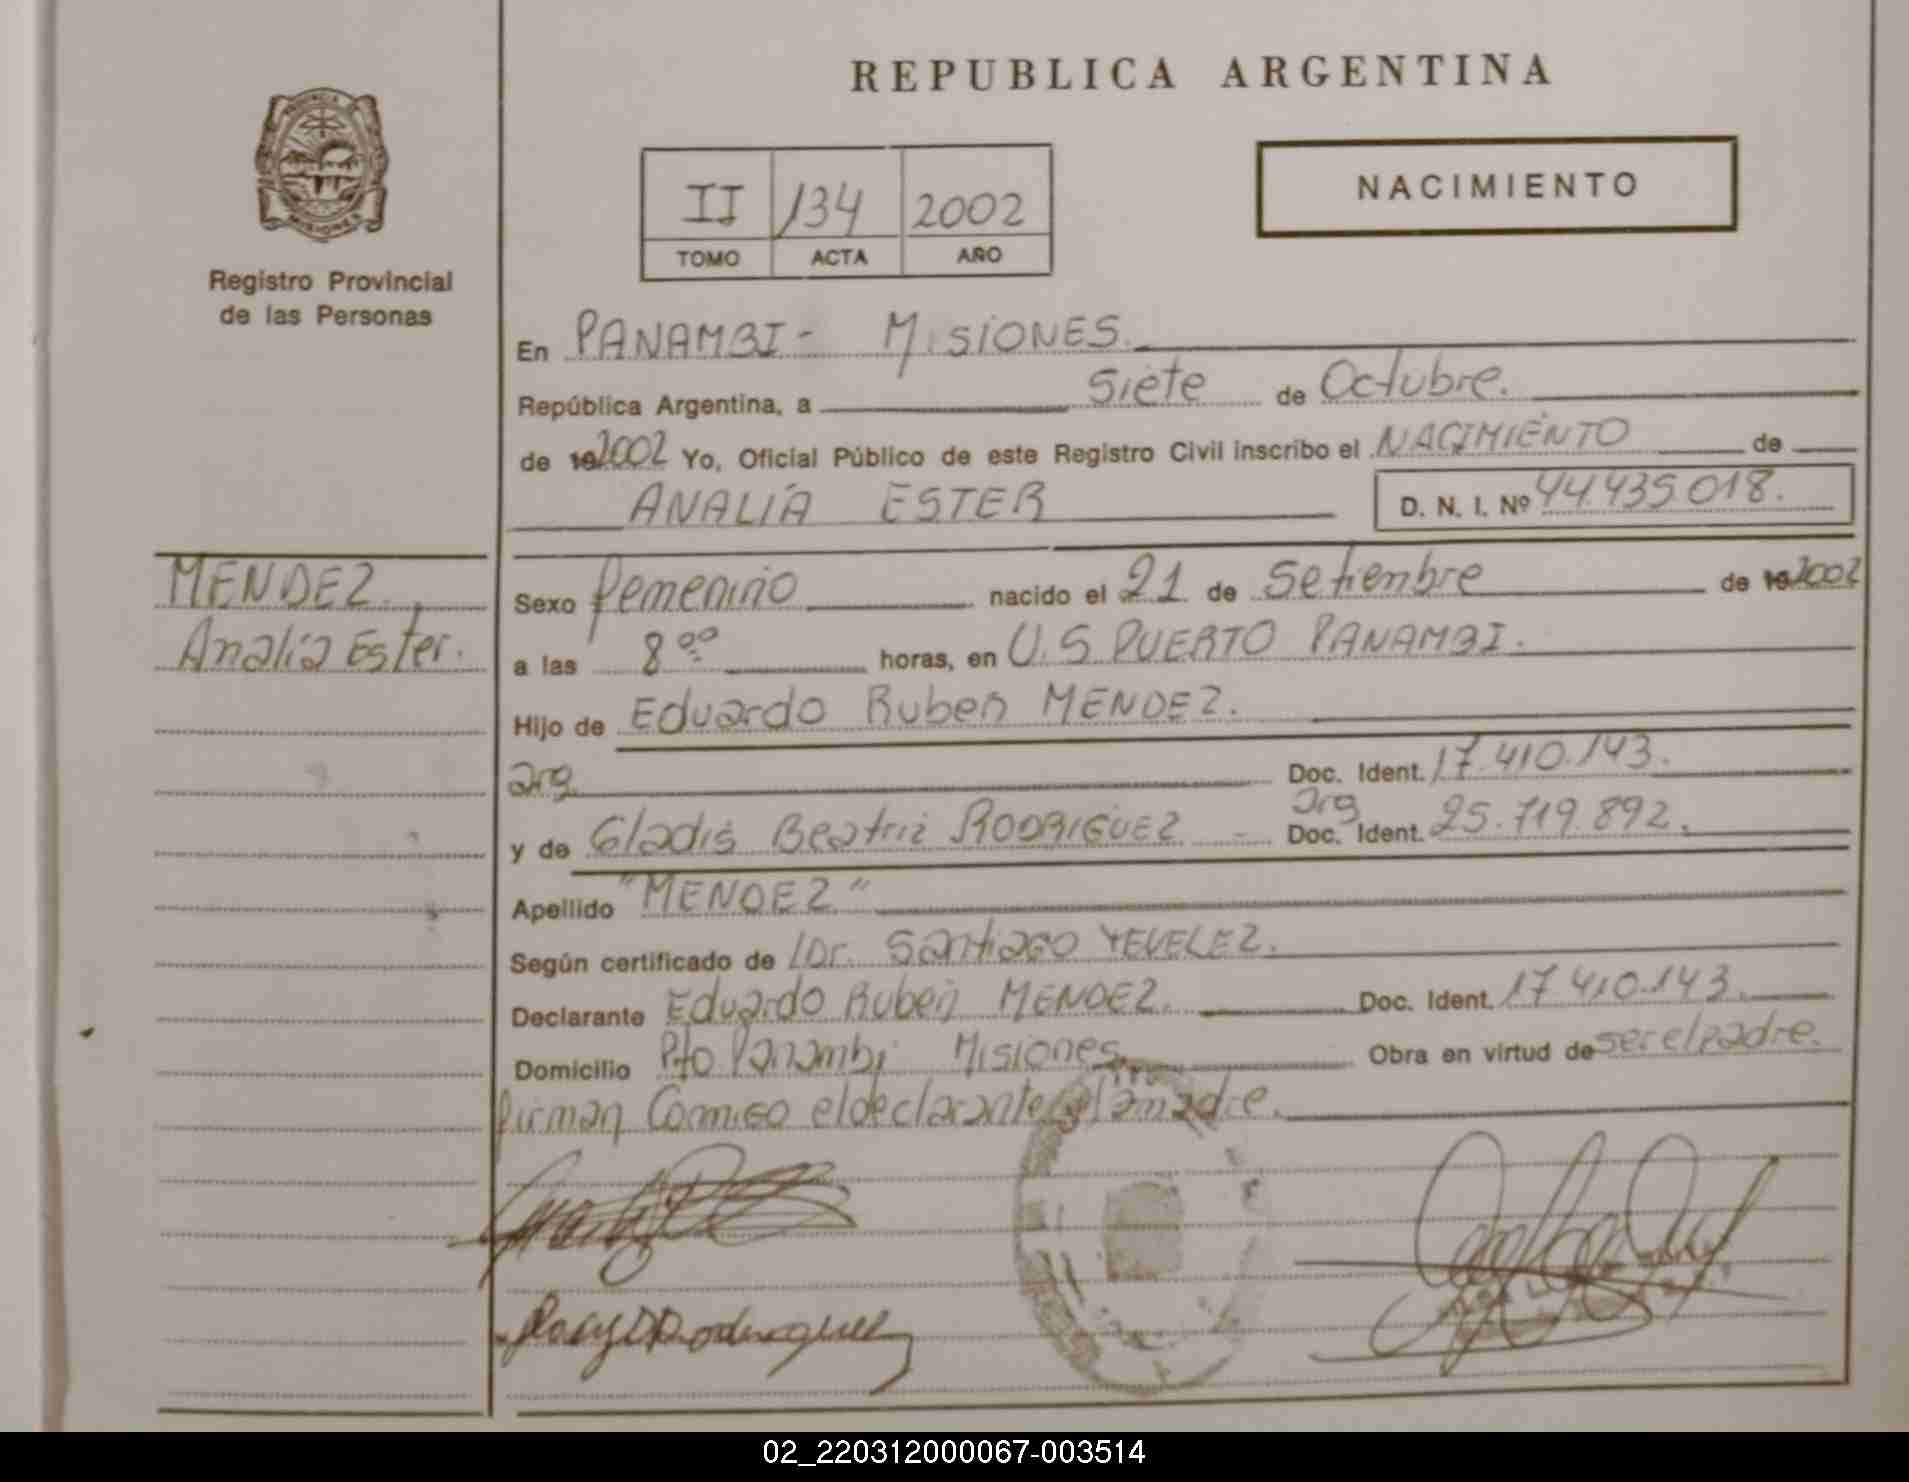 REPUBLICA ARGENTINA
PROVINCIA DE
MISIONES
Registro Provincial
de las Personas
II 134 2002
TOMO ACTA AÑO
NACIMIENTO
En PANAMBI - MISIONES.
República Argentina, a Siete de Octubre.
de 2002 Yo, Oficial Público de este Registro Civil inscribo el NACIMIENTO de
ANALIA ESTER D. N. I. Nº 44.435.018.
MENDEZ
Analía Ester.
Sexo femenino nacido el 21 de Setiembre de 2002
a las 8 ºº horas, en U.S PUERTO PANAMBI.
Hijo de Eduardo Ruben MENDEZ.
arg. Doc. Ident. 17.410.143.
arg
y de Gladis Beatriz RODRIGUEZ Doc. Ident. 25.719.892.
Apellido "MENDEZ"
Según certificado de Dr. Santiago YEVELEZ.
Declarante Eduardo Ruben MENDEZ. Doc. Ident. 17.410.143.
Domicilio Pto Panambi Misiones. Obra en virtud de ser el padre.
firman Comigo el declarante y la madre.
02_220312000067-003514